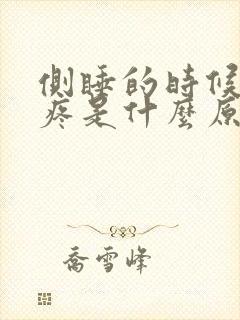 側睡的時候
疼是什麼原
喬雪峰